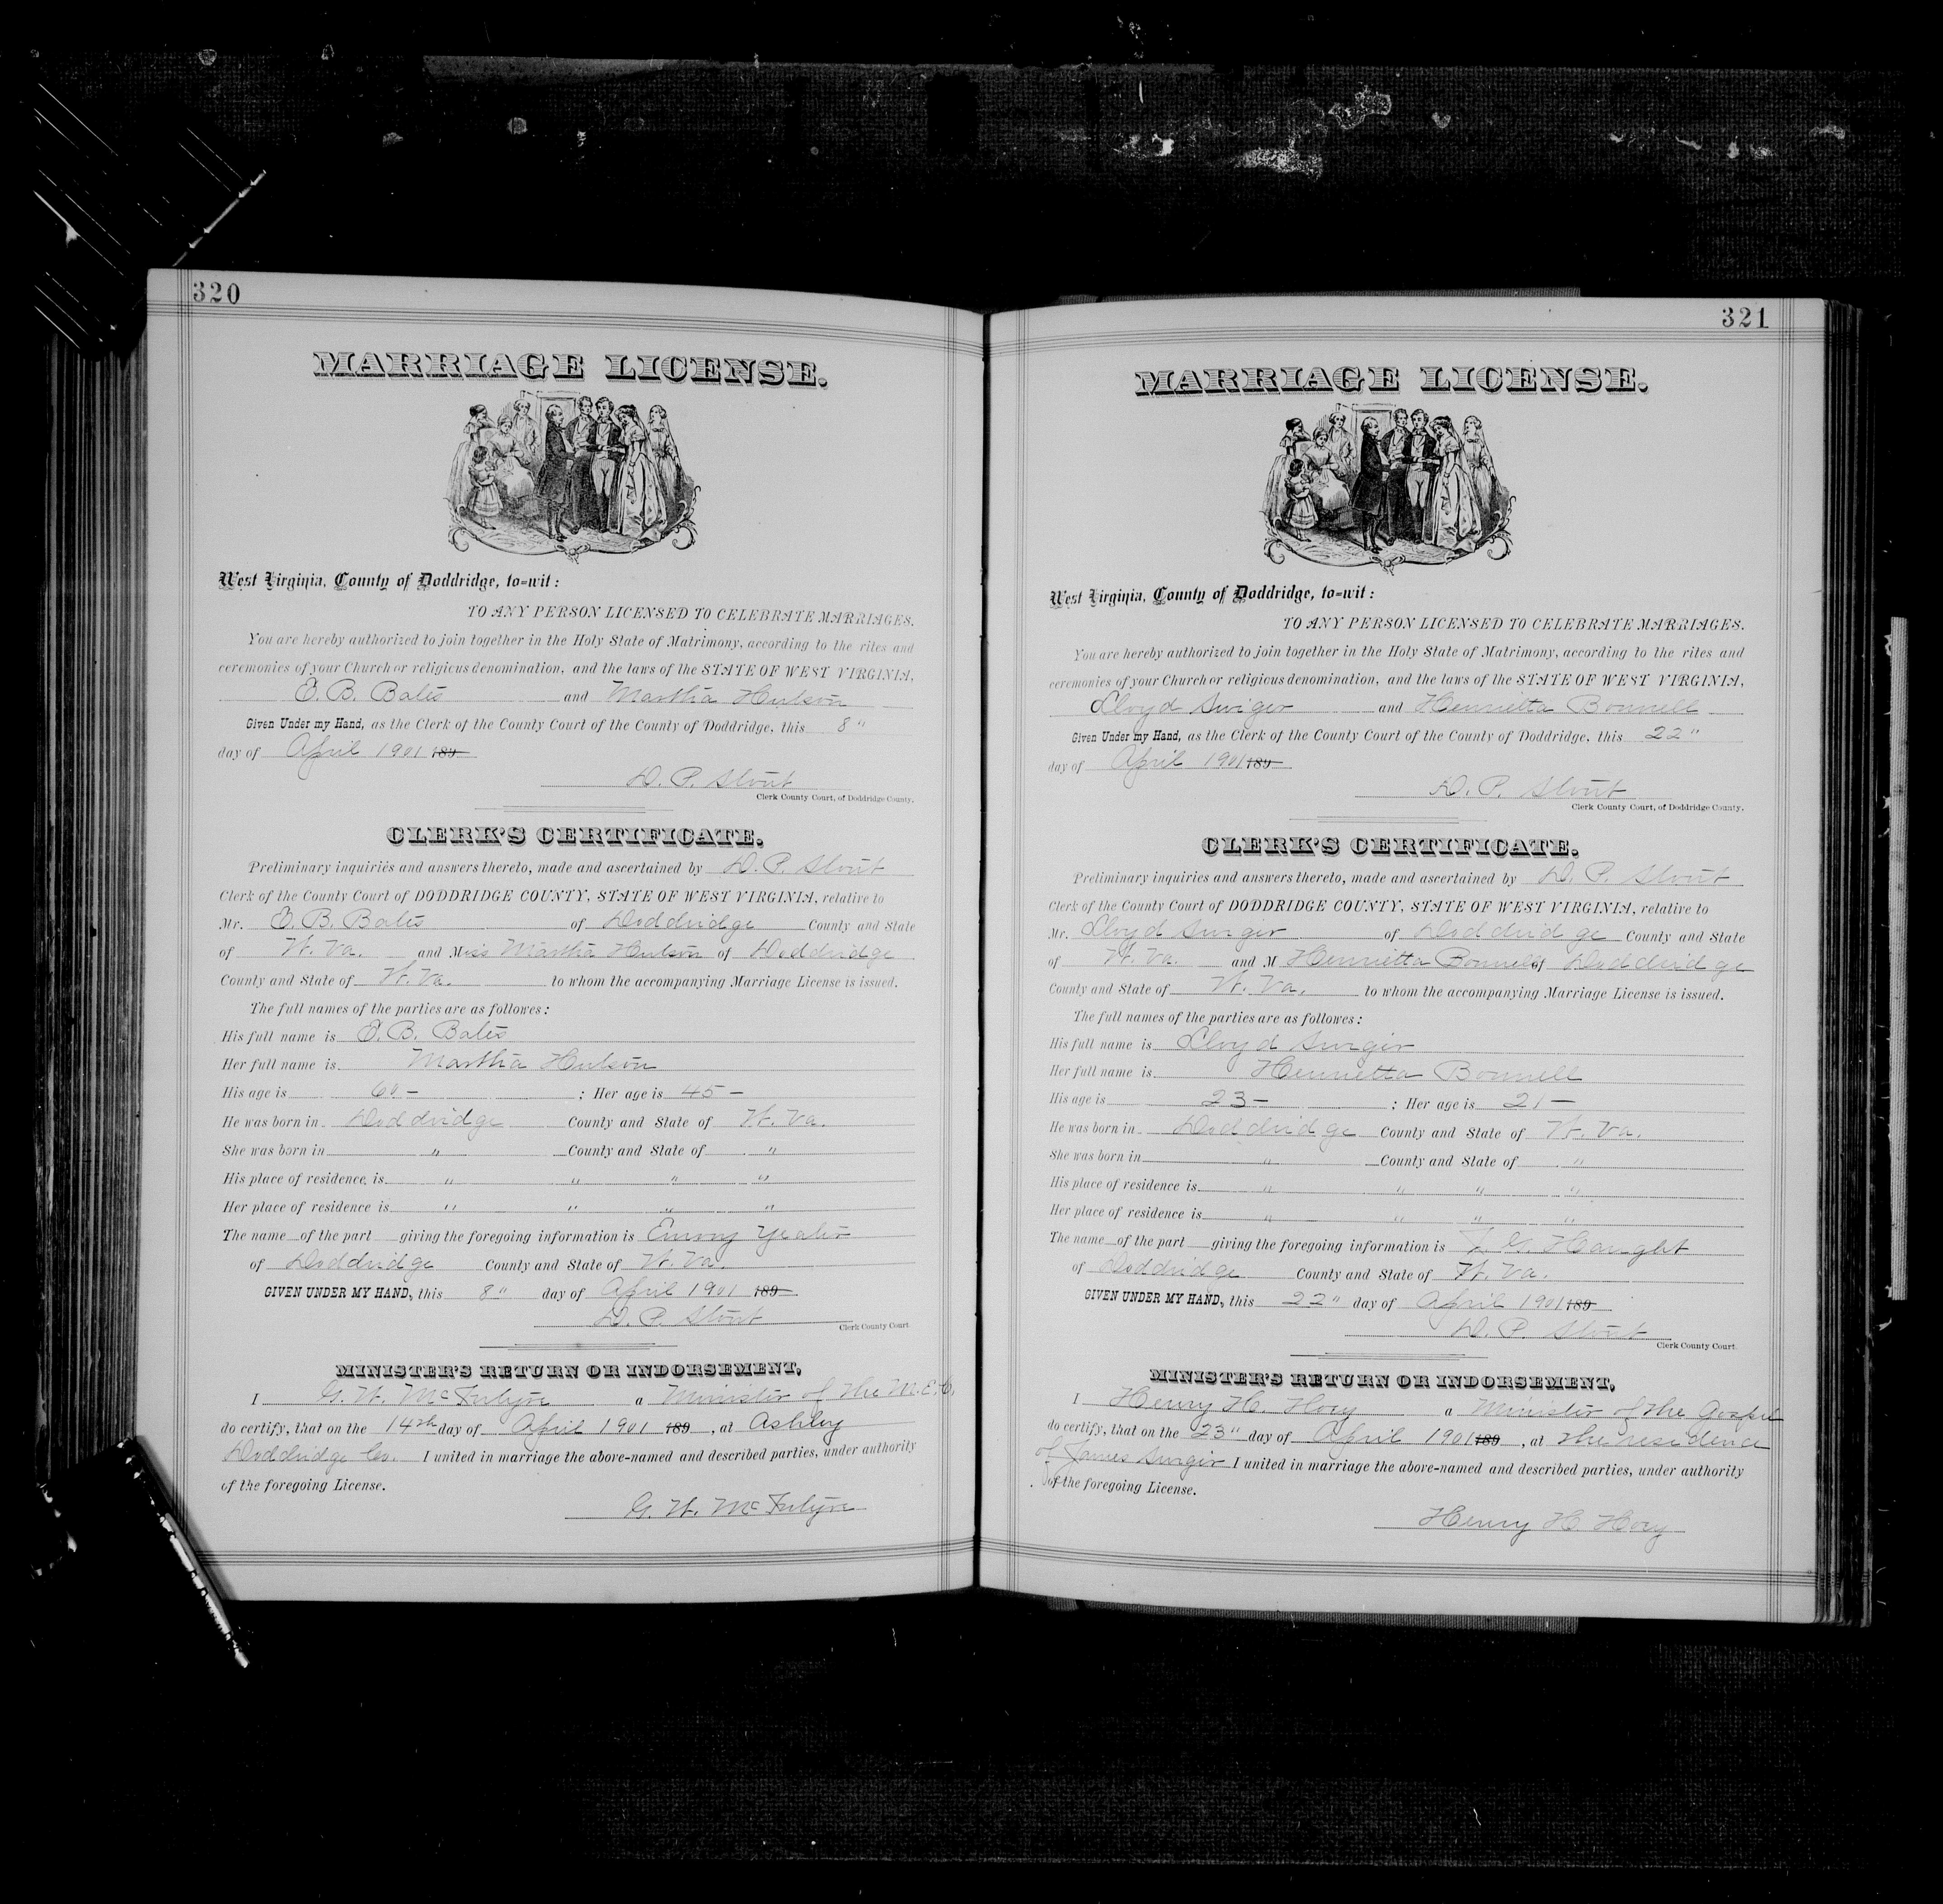 320
MARRIAGE LICENSE.
West Virginia, County of Doddridge, to=wit:
TO ANY PERSON LICENSED TO CELEBRATE MARRIAGES.
You are hereby authorized to join together in the Holy State of Matrimony, according to the rites and
ceremonies of your Church or religious denomination, and the laws of the STATE OF WEST VIRGINIA,
B. Bates and Martha Hutson
Given Under my Hand, as the Clerk of the County Court of the County of Doddridge, this 8"
day of April 1901 189
D. P. Stout
Clerk County Court, of Doddridge County.
CLERK'S CERTIFICATE.
Preliminary inquiries and answers thereto, made and ascertained by D. P. Stout
Clerk of the County Court of DODDRIDGE COUNTY, STATE OF WEST VIRGINIA, relative to
Mr. B. Bates of Doddridge County and State
of W. Va. and Miss Martha Hutson of Doddridge
County and State of W. Va. to whom the accompanying Marriage License is issued.
The full names of the parties are as followes:
His full name is B. Bates
Her full name is Martha Hutson
His age is 60 - : Her age is 45 -
He was born in Doddridge County and State of W. Va.
She was born in " County and State of "
His place of residence is " " " "
Her place of residence is " " " "
The name of the part giving the foregoing information is Emory Yeater
of Doddridge County and State of W. Va.
GIVEN UNDER MY HAND, this 8" day of April 1901 189
D. P. Stout
Clerk County Court
MINISTER'S RETURN OR INDORSEMENT,
I G. W. McIntyre a Minister of the M. E. C.
do certify, that on the 14th day of April 1901 189 , at Ashley
Doddridge Co. I united in marriage the above-named and described parties, under authority
of the foregoing License.
G. W. McIntyre
321
MARRIAGE LICENSE.
West Virginia, County of Doddridge, to=wit:
TO ANY PERSON LICENSED TO CELEBRATE MARRIAGES.
You are hereby authorized to join together in the Holy State of Matrimony, according to the rites and
ceremonies of your Church or religious denomination, and the laws of the STATE OF WEST VIRGINIA,
Lloyd Swiger and Henrietta Bonnell
Given Under my Hand, as the Clerk of the County Court of the County of Doddridge, this 22"
day of April 1901 189
D. P. Stout
Clerk County Court, of Doddridge County.
CLERK'S CERTIFICATE.
Preliminary inquiries and answers thereto, made and ascertained by D. P. Stout
Clerk of the County Court of DODDRIDGE COUNTY, STATE OF WEST VIRGINIA, relative to
Mr. Lloyd Swiger of Doddridge County and State
of W. Va. and M Henrietta Bonnell of Doddridge
County and State of W. Va. to whom the accompanying Marriage License is issued.
The full names of the parties are as followes:
His full name is Lloyd Swiger
Her full name is Henrietta Bonnell
His age is 23 - : Her age is 21 -
He was born in Doddridge County and State of W. Va.
She was born in " County and State of "
His place of residence is " " " "
Her place of residence is " " " "
The name of the part giving the foregoing information is G. Haught
of Doddridge County and State of W. Va.
GIVEN UNDER MY HAND, this 22" day of April 1901 189
D. P. Stout
Clerk County Court.
MINISTER'S RETURN OR INDORSEMENT,
I Henry H. Hoey a Minister of the Gospel
do certify, that on the 23" day of April 1901 189 , at the residence
of James Swiger I united in marriage the above-named and described parties, under authority
of the foregoing License.
Henry H. Hoey